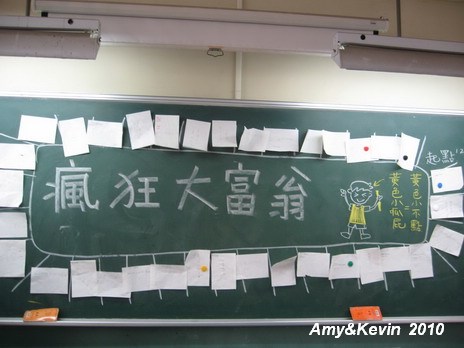 瘋狂大富翁
起點
黃色小不點
黃色小呱屁
Amy&Kevin 2010